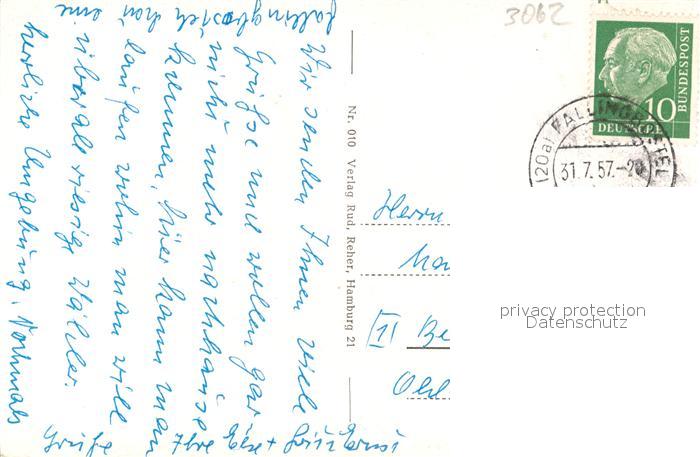 Fallingbostel hat eine
Wir senden Ihnen viele
Grüße und wollen gar
nicht mehr nachhause
kommen, hier kann man
laufen wohin man will
überall riesige Wälder.
herrliche Umgebung. Nochmals
Grüße Ihre
Nr. 010 Verlag Rud. Reher, Hamburg 21
3062
10
BUNDESPOST
DEUTSCHE
(20a) FALLINGBOSTEL
31.7.57.-20
Herrn
[1] Be
privacy protection
Datenschutz